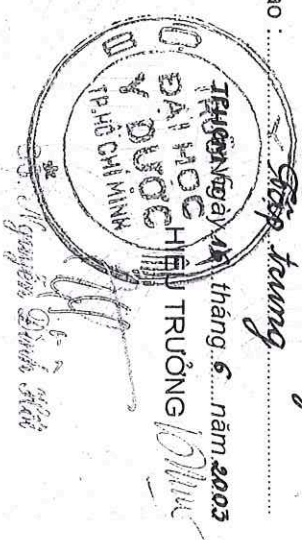 ạo : Tập trung
TP.HCM Ngày 16 tháng 6 năm 2003
HIỆU TRƯỞNG
ĐẠI HỌC
Y DƯỢC
TP.HỒ CHÍ MINH
Nguyễn Đình Hối